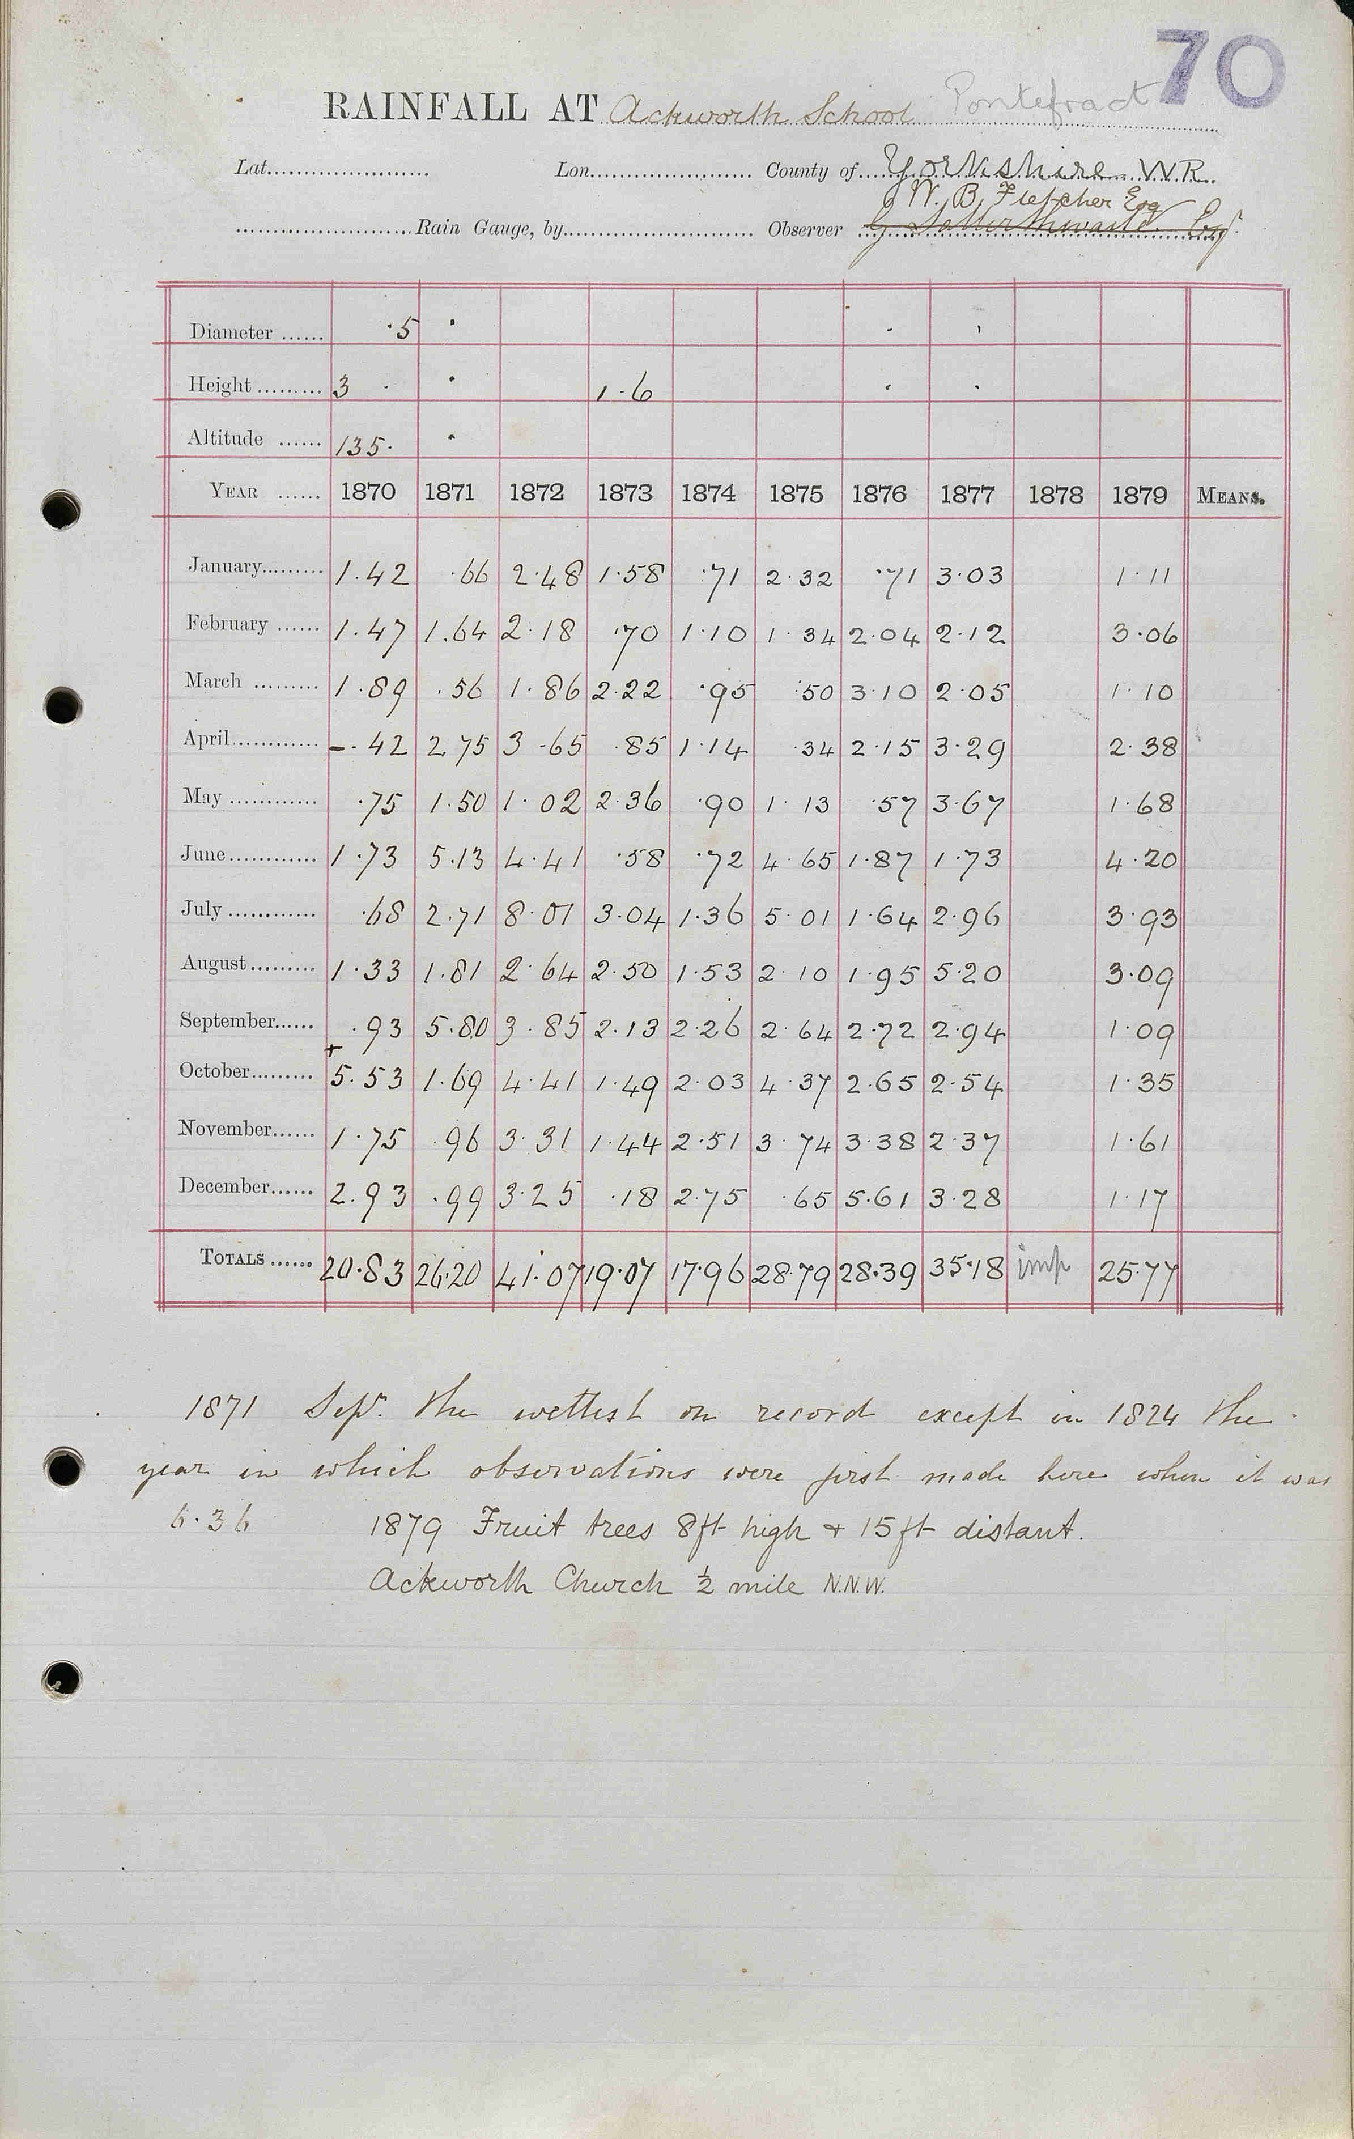 70
RAINFALL AT Ackworth School Pontefract
Lat...................... Lon...................... County of Yorkshire W.R.
W. B. Fletcher Esq
........................Rain Gauge, by.......................... Observer G. Satterthwaite Esqr.
Diameter ...... ·5 ·  ·  ·
Height ......... 3 · · 1·6 · ·
Altitude ...... 135· ·
YEAR ...... 1870 1871 1872 1873 1874 1875 1876 1877 1878 1879 MEANS.
January......... 1.42 ·66 2·48 1·58 ·71 2·32 ·71 3·03 1·11
February ...... 1.47 1.64 2·18 ·70 1·10 1·34 2·04 2·12 3·06
March ......... 1·89 ·56 1·86 2·22 ·95 ·50 3·10 2·05 1·10
April............ –·42 2 75 3·65 ·85 1·14 ·34 2·15 3·29 2·38
May ............ ·75 1.50 1·02 2·36 ·90 1·13 ·57 3·67 1·68
June............ 1·73 5·13 4·41 ·58 ·72 4·65 1·87 1·73 4·20
July ............ ·68 2·71 8·01 3·04 1·36 5·01 1·64 2·96 3·93
August ......... 1·33 1·81 2·64 2·50 1·53 2·10 1·95 5·20 3·09
September...... ·93 5·80 3·85 2·13 2·26 2·64 2·72 2·94 1·09
October......... +5.53 1.69 4·41 1·49 2·03 4·37 2·65 2·54 1·35
November...... 1·75 ·96 3·31 1·44 2·51 3·74 3·38 2·37 1·61
December...... 2.93 ·99 3·25 ·18 2·75 ·65 5·61 3·28 1·17
TOTALS ...... 20·83 26·20 41·07 19·07 17·96 28·79 28·39 35·18 imp 25·77
1871 Sepr. the wettest on record except in 1824 the
year in which observations were first made here when it was
6·36 1879 Fruit trees 8ft high + 15ft distant.
Ackworth Church ½ mile N.N.W.